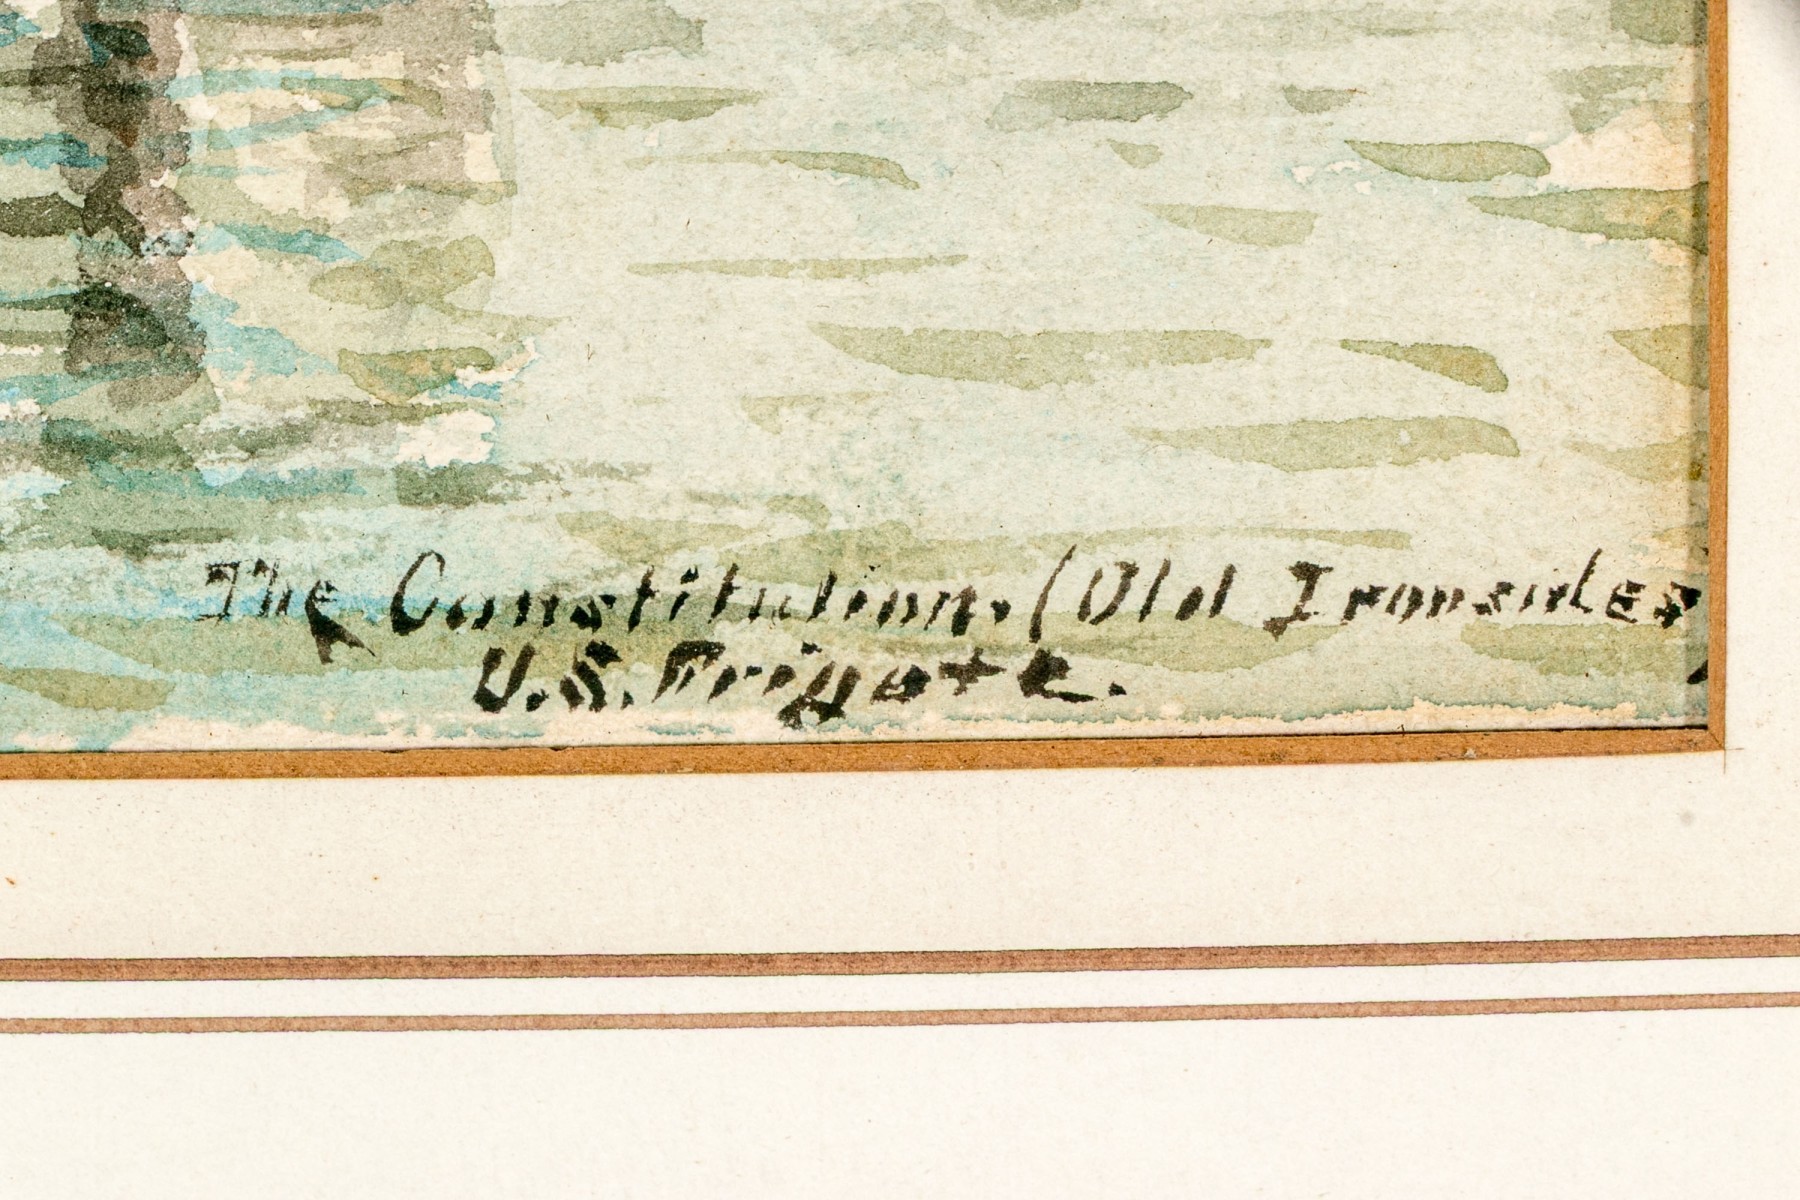 The Constitution. (Old Ironsides
U.S. Frigate.